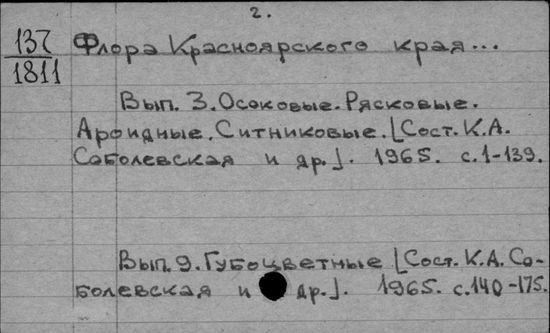 2.
137
1811
Флора Красноярского края...
Вып. 3. Осоковые. Рясковые.
Ароидные. Ситниковые. [Сост. К.А.
Соболевская и др.]. 1965. с.1-139.
Вып. 9. Губоцветные [Сост. К.А. Со-
болевская и др.]. 1965. с.140-175.